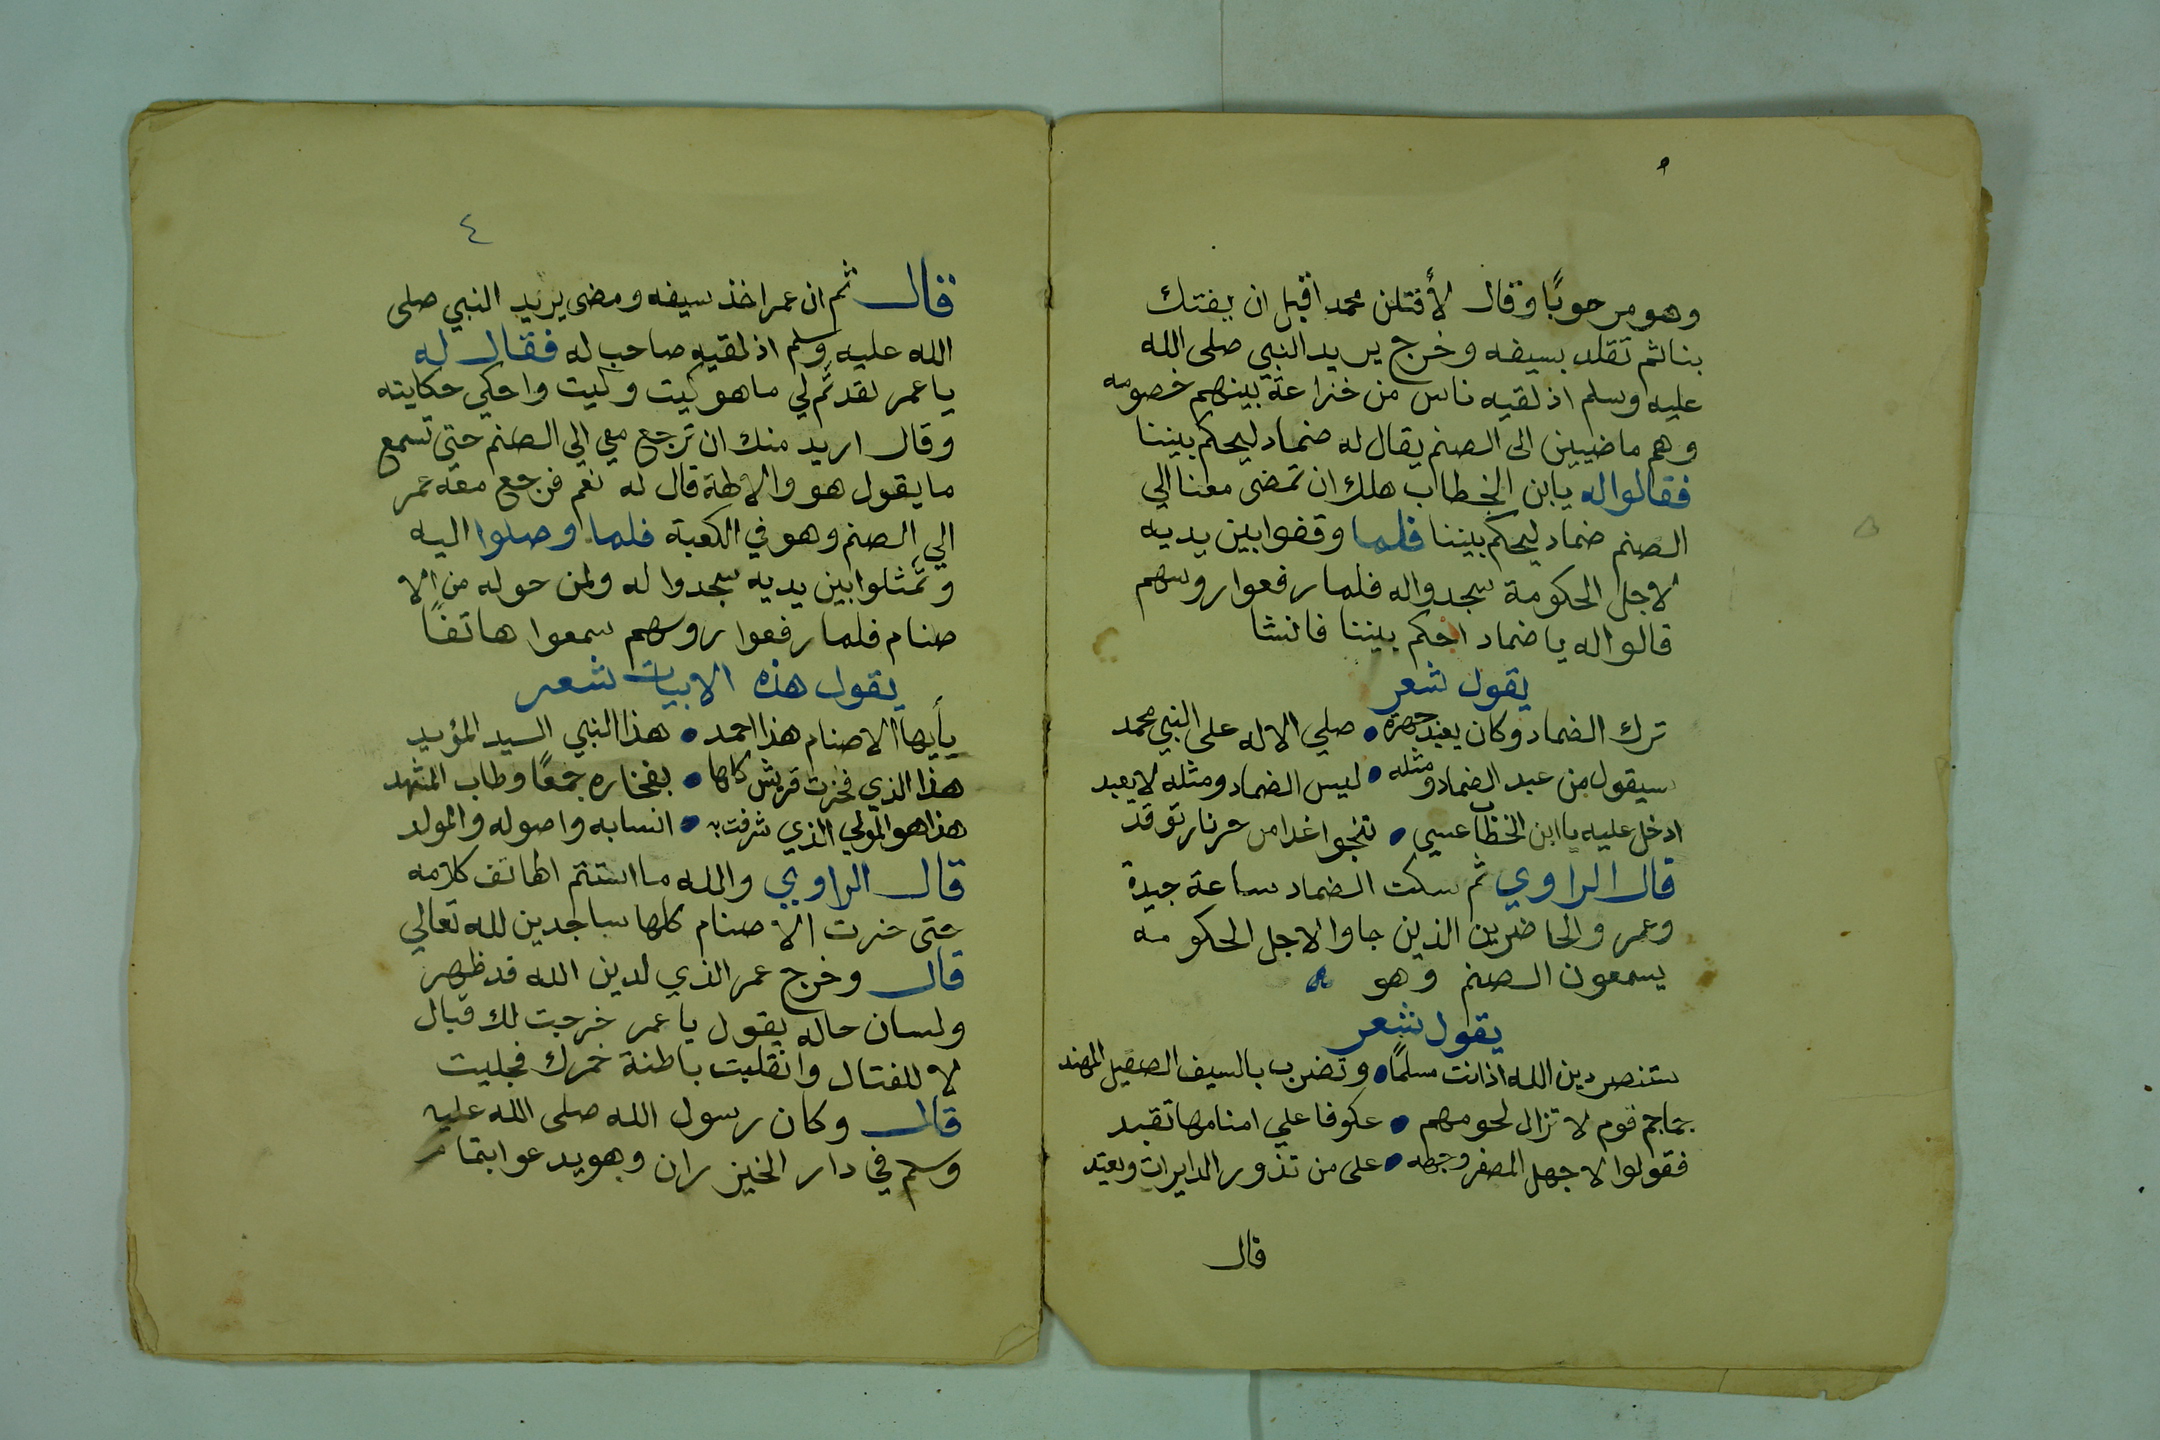 وهو مرحوبًا وقال لأقتلن محمد اقبل ان يفتك
بنا ثم تقلد بسيفه وخرج يريد النبي صلى الله
عليه وسلم اذ لقيه ناس من خزاعة بينهم خصومه
وهم ماضيين الى الصنم يقال له ضماد ليحكم بيننا
فقالوا له يا ابن الخطاب هلك ان تمضى معنا الي
الصنم ضماد ليحكم بيننا فلما وقفوا بين يديه
لاجل الحكومة سجدوا له فلما رفعوا روسهم
قالوا له يا ضماد احكم بيننا فانشا
يقول شعر
ترك الضماد وكان يعبد جهرة • صلي الاله على النبي محمد
سيقول من عبد الضماد ومثله • ليس الضماد ومثله لا يعبد
ادخل عليه يا ابن الخطاب عسي • تنجوا غدا من حر نار توقد
قال الراوي ثم سكت الضماد ساعة جيدة
وعمر والحاضرين الذين جاوا لاجل الحكومه
يسمعون الصنم وهو ه
يقول شعر
ستنصر دين الله اذا نت مسلمًا • وتضرب بالسيف الصقيل المهند
جماجم قوم لا تزال لحومهم • عكوفا علي امنامها تقبد
فقولوا لا جهل المصفر وجهه • على من تذور الدايرات ويعتد
قال
٤
قال ثم ان عمر اخذ سيفه ومضى يريد النبي صلى
الله عليه وسلم اذ لقيه صاحب له فقال له
يا عمر تقدم لي ما هو كيت وكيت واحكي حكايته
وقال اريد منك ان ترجع معي الي الصنم حتى تسمع
ما يقول هو والالهة قال له نعم فرجع معه عمر
الي الصنم وهو في الكعبة فلما وصلوا اليه
وتمثلوا بين يديه سجدوا له ولمن حوله من الا
صنام فلما رفعوا روسهم سمعوا هاتفًا
يقول هذه الابيات شعر
يأيها الاصنام هذا احمد • هذا النبي السيد المؤيد
هذا الذي فخرت قريش كلها • بفخاره جمعًا وطاب المشهد
هذا هو المولي الذي شرفت به • انسابه واصوله والمولد
قال الراوي والله ما استتم الهاتف كلامه
حتى خرت الاصنام كلها ساجدين لله تعالي
قال وخرج عمر الذي لدين الله قد ظهر
ولسان حاله يقول يا عمر خرجت لك قبال
لا للقتال وانقلبت باطنة خمرك فجليت
قال وكان رسول الله صلى الله عليه
وسلم في دار الخيزران وهو يدعوا بتمام